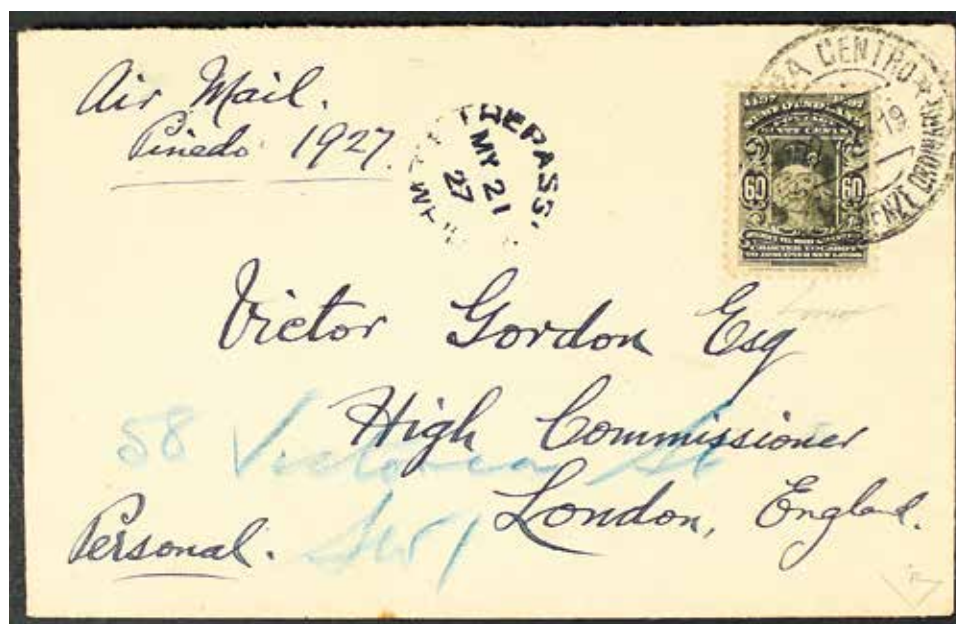 Air Mail.
Pinedo 1927.
TREPASS.
MY 21
27
CENTRO
19
1497 1897
NEWFOUNDLAND
60 60
Victor Gordon Esq
High Commissioner
London, England.
58 Victoria St
SW1
Personal.